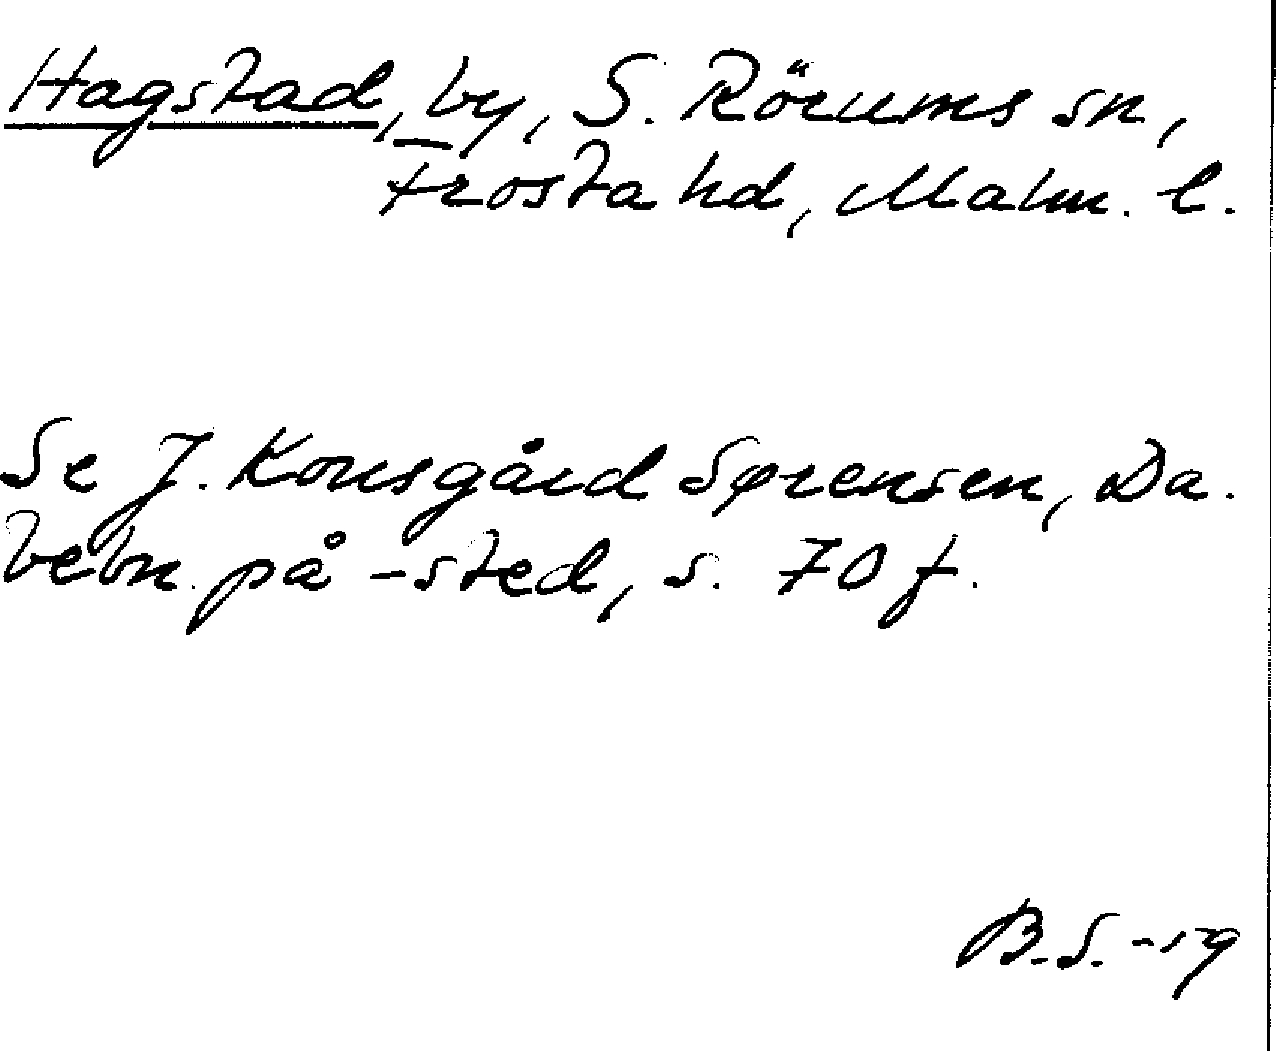 Hagstad, by, S. Rörums sn,
Frosta hd, Malm. l.
Se J. Kousgård Sørensen, Da.
bebn. på -sted, s. 70 f.
B.S. -59